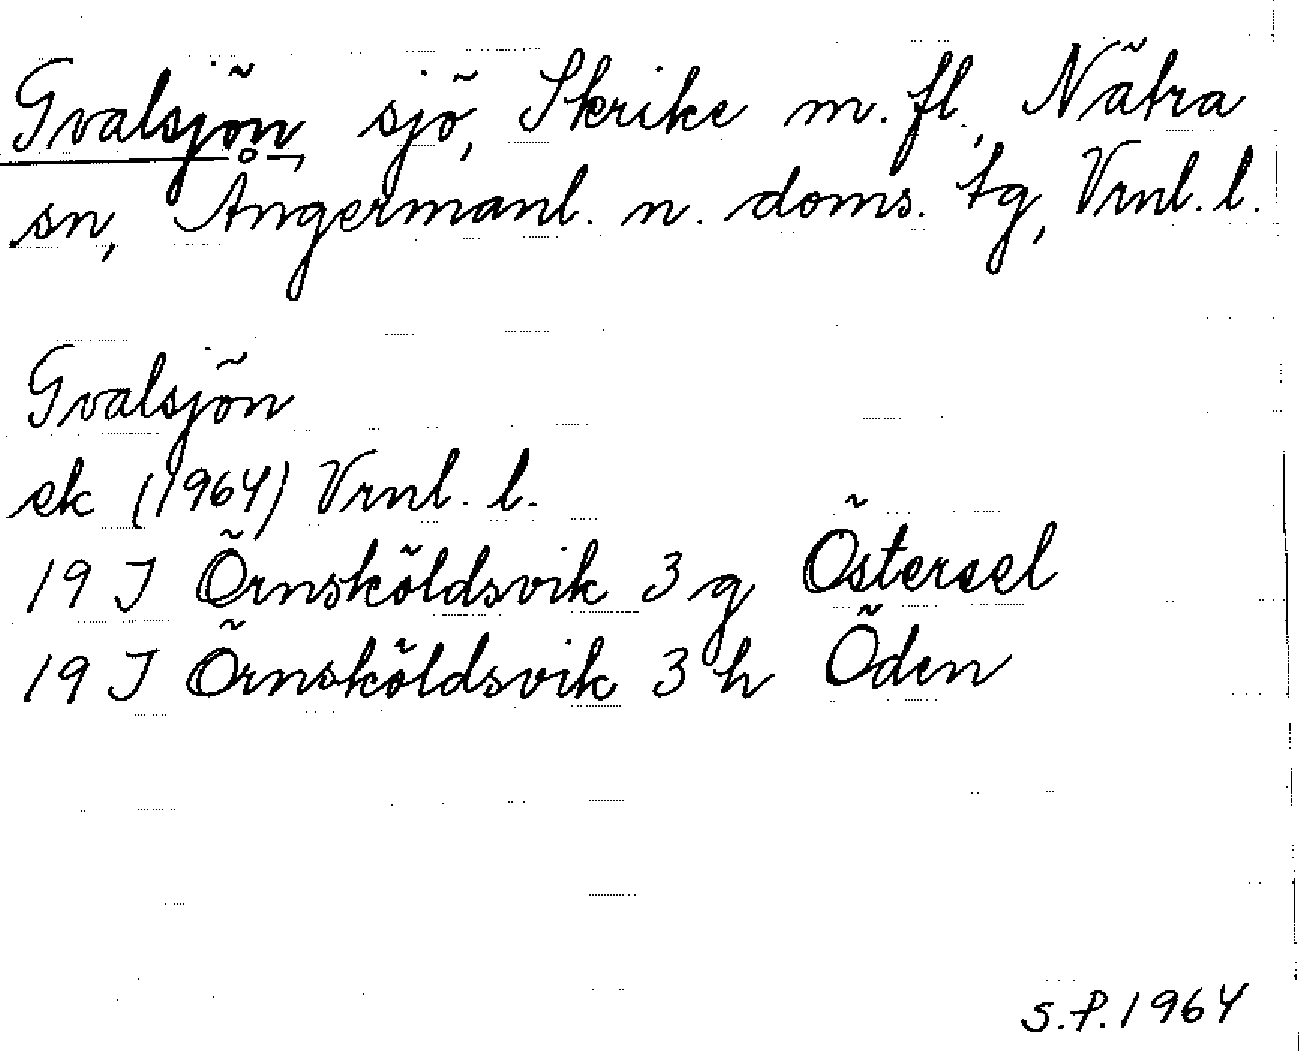 Gvalsjön, sjö, Skrike m. fl., Nätra
sn, Ångermanl. n. doms. tg, Vrnl. l.
Gvalsjön
ek (1964) Vrnl. l.
19 J Örnsköldsvik 3 g Östersel
19 J Örnsköldsvik 3 h Öden
S.P. 1964